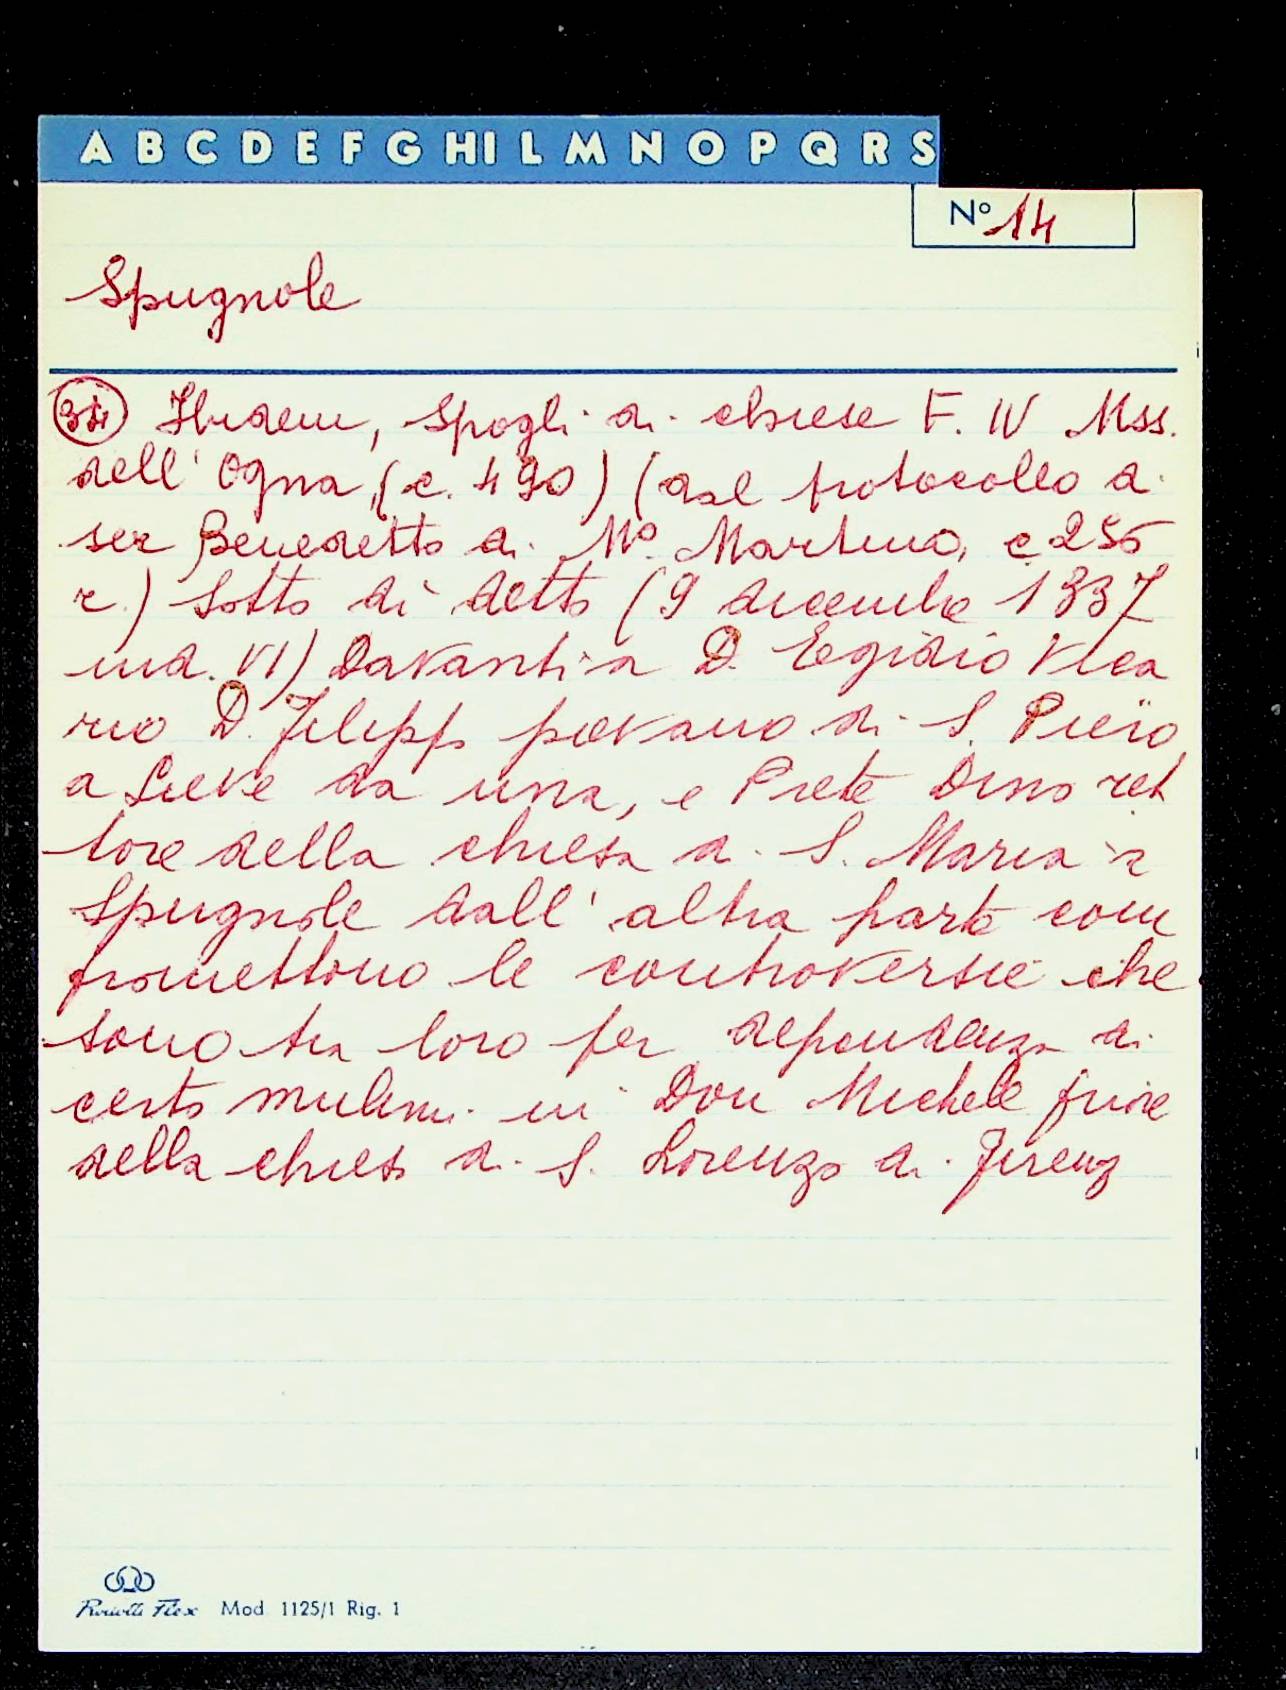 A B C D E F G HI L M N O P Q R S
Nº 14
Spugnole
Ibidem, Spogli di chiese F. IV Mss.
dell' Ogna (c. 490) (dal protocollo di
ser Benedetto di Mº. Martino, c 256
r.) Sotto dì detto (9 dicembre 1337
ind. VI) Davanti a D. Egidio Vica
rio D. Filippo pievano di S. Piero
a Sieve da una, e Prete Dino ret
tore della chiesa di S. Maria a
Spugnole dall' altra parte com
promettono le controversie che
sono tra loro per dependenza di
certo mulini in Don Michele priore
della chiesa di S. Lorenzo di Firenz
Mod 1125/1 Rig. 1